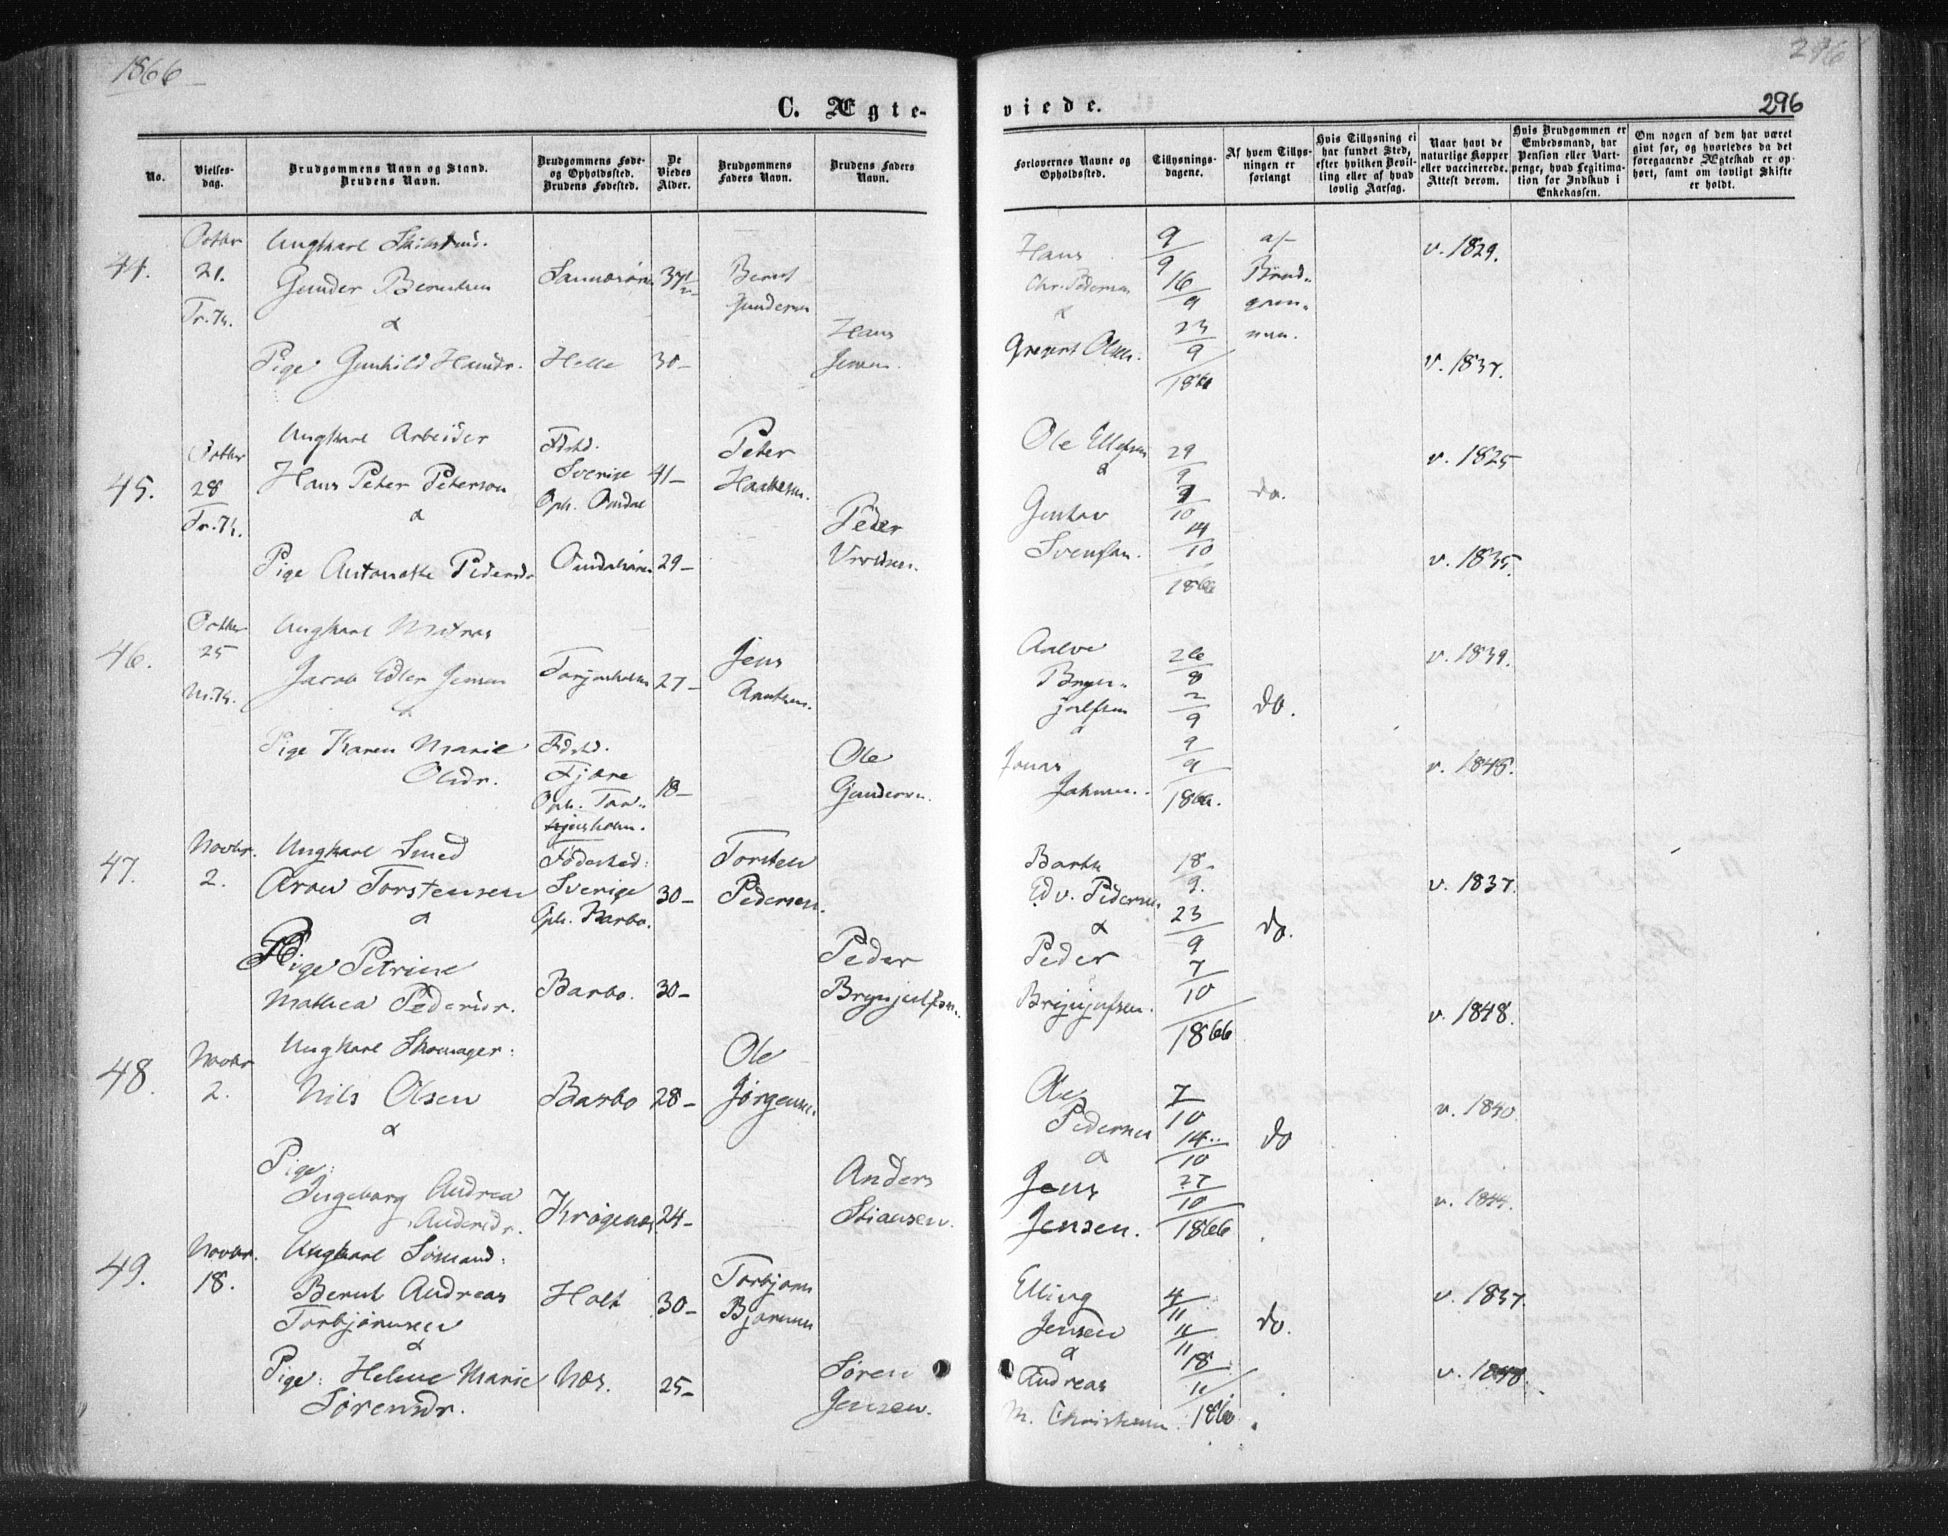 1866
296
C. Ægte-
viede.
296
No.
Vielses-
dag.
Brudgommens Navn og Stand.
Brudens Navn.
Brudgommens Føde-
og Opholdssted.
Brudens Fødested.
De
Viedes
Alder.
Brudgommens
Faders Navn.
Brudens Faders
Navn.
Forlovernes Navne og
Opholdssted.
Tillysnings-
dagene.
Af hvem Tillys-
ningen er
forlangt
Hvis Tillysning ei
har fundet Sted,
efter hvilken Bevil-
ling eller af hvad
lovlig Aarsag.
Naar havt de
naturlige Kopper
eller vaccinerede.
Attest derom.
Hvis Brudgommen er
Embedsmand, har
Pension eller Vart-
penge, hvad Legitima-
tion for Indskud i
Enkekassen.
Om nogen af dem har været
givt før, og hvorledes da det
foregaaende Ægteskab er op-
hørt, samt om lovligt Skifte
er holdt.
44.
Octbr
21.
Tr. K.
Ungkarl
Gunder Berntsen
&
Pige Gunhild Hansdr.
Helle
37½
30-
Bernt
Gundersen
Hans
Jensen.
Hans
Chr. Pedersen
&
Gregers Olsen.
9/9
16/9
23/9
1866
af
Brud-
gom-
men.
v. 1829.
v. 1837.
45.
Octbr
28
Tr. K.
Ungkarl Arbeider
Hans Peter Peterson
&
Pige Antonette Pedersdr
Fdstd.
Sverige
Oph. Omdal
41-
29-
Peter
Haakesen.
Peder
Ole Ellefsen
&
Gustav
Svensen.
29/9
7/10
14/10
1866
do.
v. 1825
v. 1835.
46.
Octbr
25
N. K.
Ungkarl Matros
Jacob Edler Jensen
&
Pige Karen Marie
Olsdr.
Torjusholm
Fdstd.
Fjære
Oph. Tor-
jusholm.
27-
18-
Jens
Ole
Gundersen.
Aalve
Bryn-
julfsen
&
Jonas
Johnsen.
26/8
2/9
9/9
1866.
do.
v. 1839.
v. 1845.
47.
Novbr.
2.
Ungkarl Smed
Aron Torstensen
&
Pige Petrine
Mathea Pedersdr.
Fødested:
Sverige
Oph. Barbo.
Barbo.
30-
30-
Torsten
Pedersen.
Peder
Brynjulfsen.
Barth
Edv. Pedersen
&
Peder
Brynjulfsen.
18/9.
23/9
7/10
1866
do.
v. 1837.
v. 1848.
48
Novbr
2.
Ungkarl Skomager:
Nils Olsen
&
Pige:
Ingeborg Andrea
Andersdr.
Barbo
Krøgenæs
28-
24-
Ole
Jørgensen.
Anders
Stiansen.
Ole
Pedersen
&
Jens
Jensen.
7/10
14/10
27/10
1866
do
v. 1840.
v. 1844.
49.
Novbr.
18.
Ungkarl Sømand:
Bernt Andreas
Torbjørnsen
&
Pige: Helene Marie
Sørensdr.
Holt
Næs.
30-
25-
Torbjørn
Bjørnsen
Søren
Jensen.
Elling
Jensen
&
Andreas
M. Christensen.
4/11
11/11
18/11
1866.
do.
v. 1837.